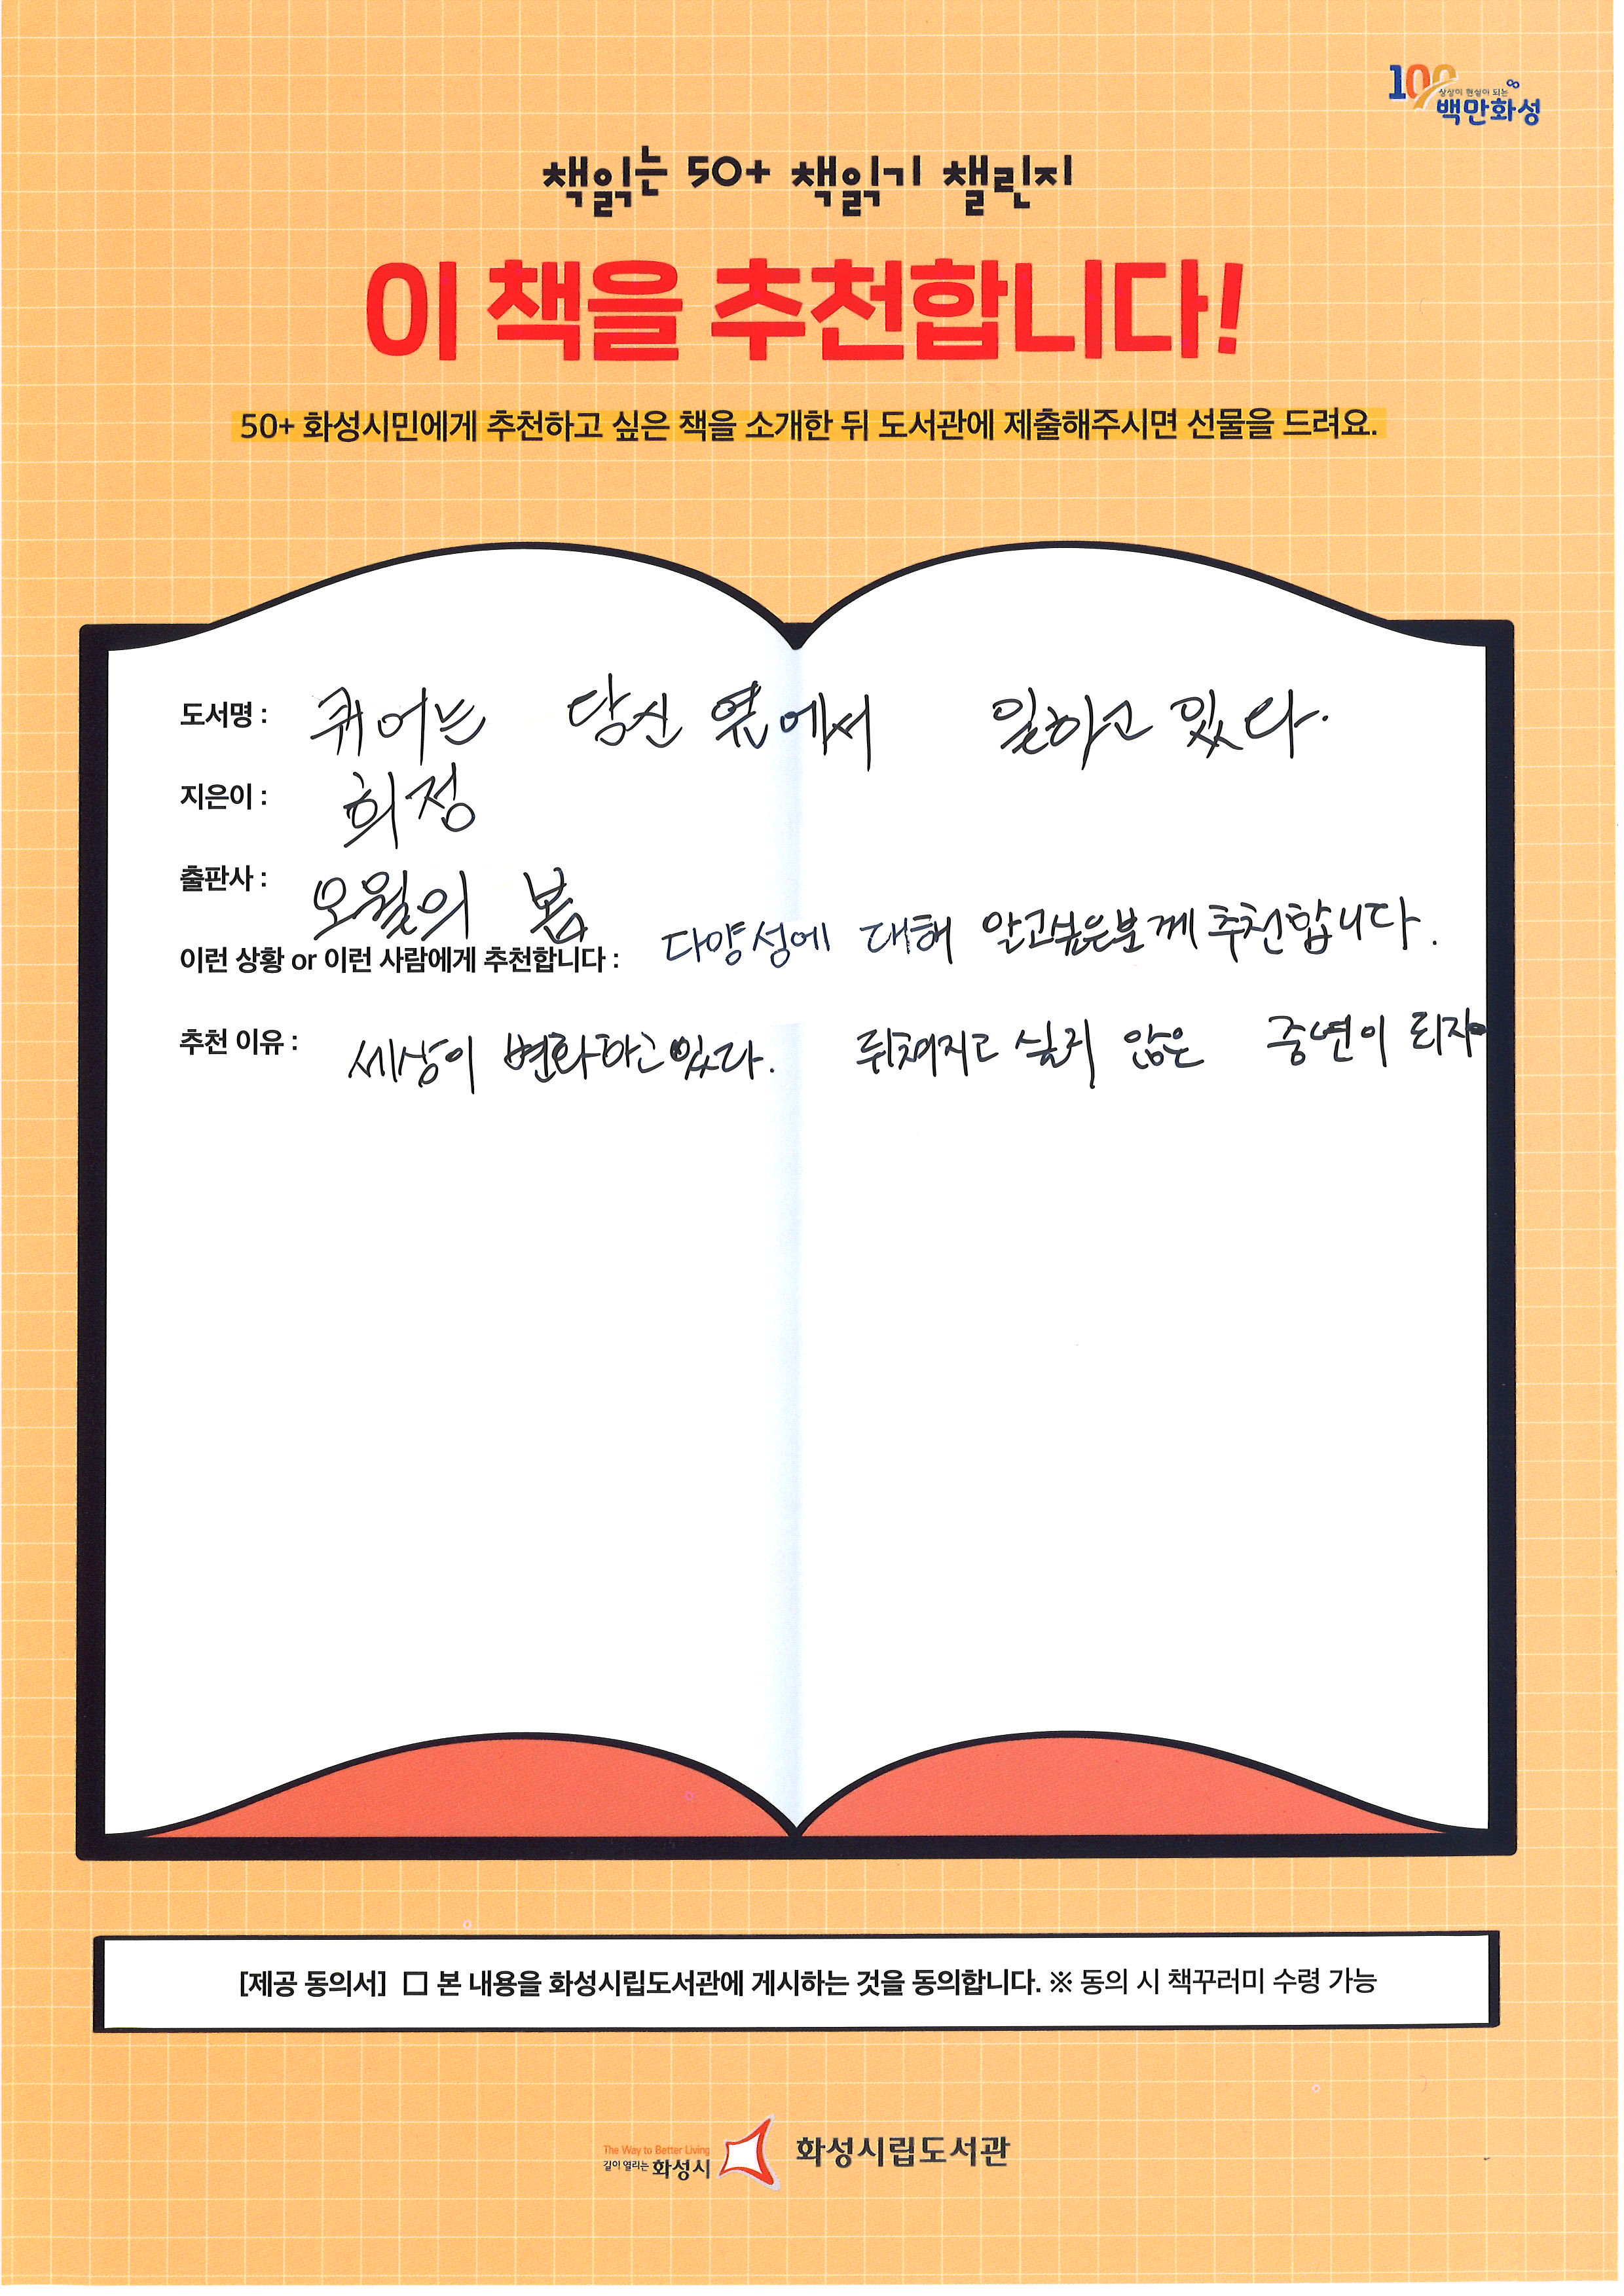 100
상상이 현실이 되는
백만화성
책읽는 50+ 책읽기 챌린지
이 책을 추천합니다!
50+ 화성시민에게 추천하고 싶은 책을 소개한 뒤 도서관에 제출해주시면 선물을 드려요.
도서명 : 퀴어는 당신 옆에서 일하고 있다.
지은이 : 희정
출판사 : 오월의 봄
이런 상황 or 이런 사람에게 추천합니다 : 다양성에 대해 알고싶은분께 추천합니다.
추천 이유 : 세상이 변화하고있다. 뒤쳐지고 싶지 않은 중년이 되자
[제공 동의서] □ 본 내용을 화성시립도서관에 게시하는 것을 동의합니다. ※ 동의 시 책꾸러미 수령 가능
The Way to Better Living
길이 열리는 화성시
화성시립도서관